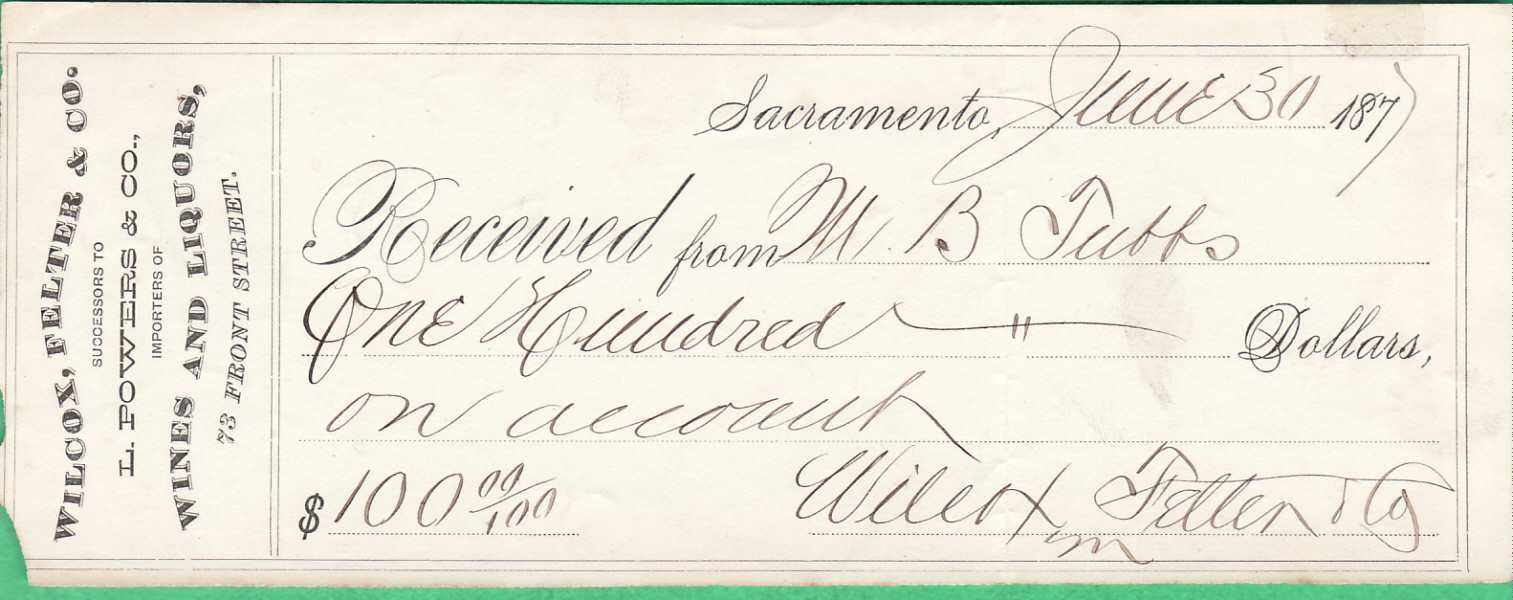 WILCOX, FELTER & CO.
SUCCESSORS TO
L. POWERS & CO.,
IMPORTERS OF
WINES AND LIQUORS,
73 FRONT STREET.
Sacramento, June 30 1877
Received from M. B Tubbs
One Hundred " Dollars,
on account
$ 100 00/100 Wilcox Felter & Co